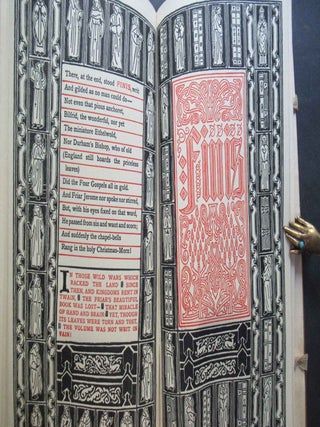 There, at the end, stood FINIS, writ
And gilded as no man could do—
Not even that pious anchoret,
Bilfrid, the wonderful, nor yet
The miniature Ethelwold,
Nor Durham's Bishop, who of old
(England still hoards the priceless
leaves)
Did the Four Gospels all in gold.
And Friar Jerome nor spoke nor stirred,
But, with his eyes fixed on that word,
He passed from sin and want and scorn;
And suddenly the chapel-bells
Rang in the holy Christmas-Morn!
IN THOSE WILD WARS WHICH
RACKED THE LAND SINCE
THEN, AND KINGDOMS RENT IN
TWAIN, THE FRIAR'S BEAUTIFUL
BOOK WAS LOST— THAT MIRACLE
OF HAND AND BRAIN YET, THOUGH
ITS LEAVES WERE TORN AND TOST,
THE VOLUME WAS NOT WRIT IN
VAIN!
Finis